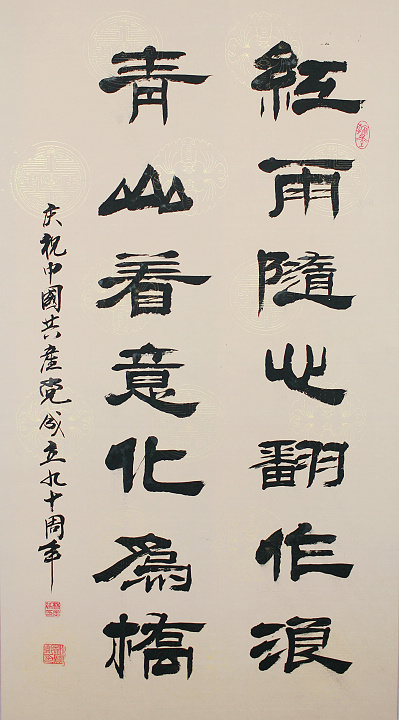 紅雨隨心翻作浪
青山着意化為橋
庆祝中國共產党成立九十周年